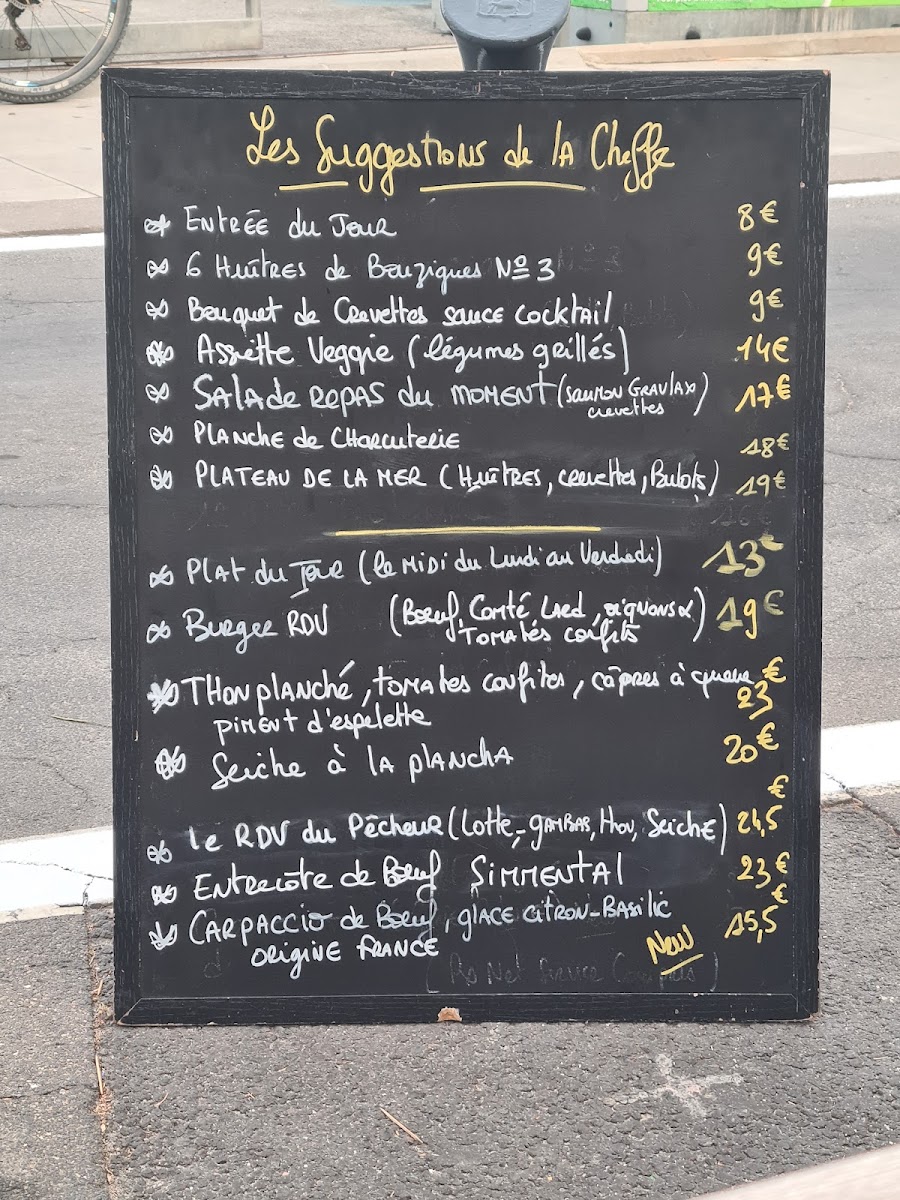 Les Suggestions de la Cheffe
Entrée du Jour 8€
6 Huîtres de Bouzigues N° 3 9€
Bouquet de Crevettes sauce cocktail 9€
Assiette Veggie (légumes grillés) 14€
Salade repas du moment (saumon Gravlax 17€
crevettes)
Planche de Charcuterie 18€
Plateau de la mer (Huîtres, crevettes, Bulots) 19€
Plat du Jour (le midi du Lundi au Vendredi) 13€
Burger RDV (Boeuf, Comté, Lard, oignons & 19€
Tomates confits)
Thon planché, tomates confites, câpres à queue 23€
piment d'espelette
Seiche à la plancha 20€
le RDV du Pêcheur (Lotte, gambas, thon, Seiche) 24,5€
Entrecôte de Boeuf Simmental 23€
Carpaccio de Boeuf, glace citron-basilic 15,5€
origine France
New